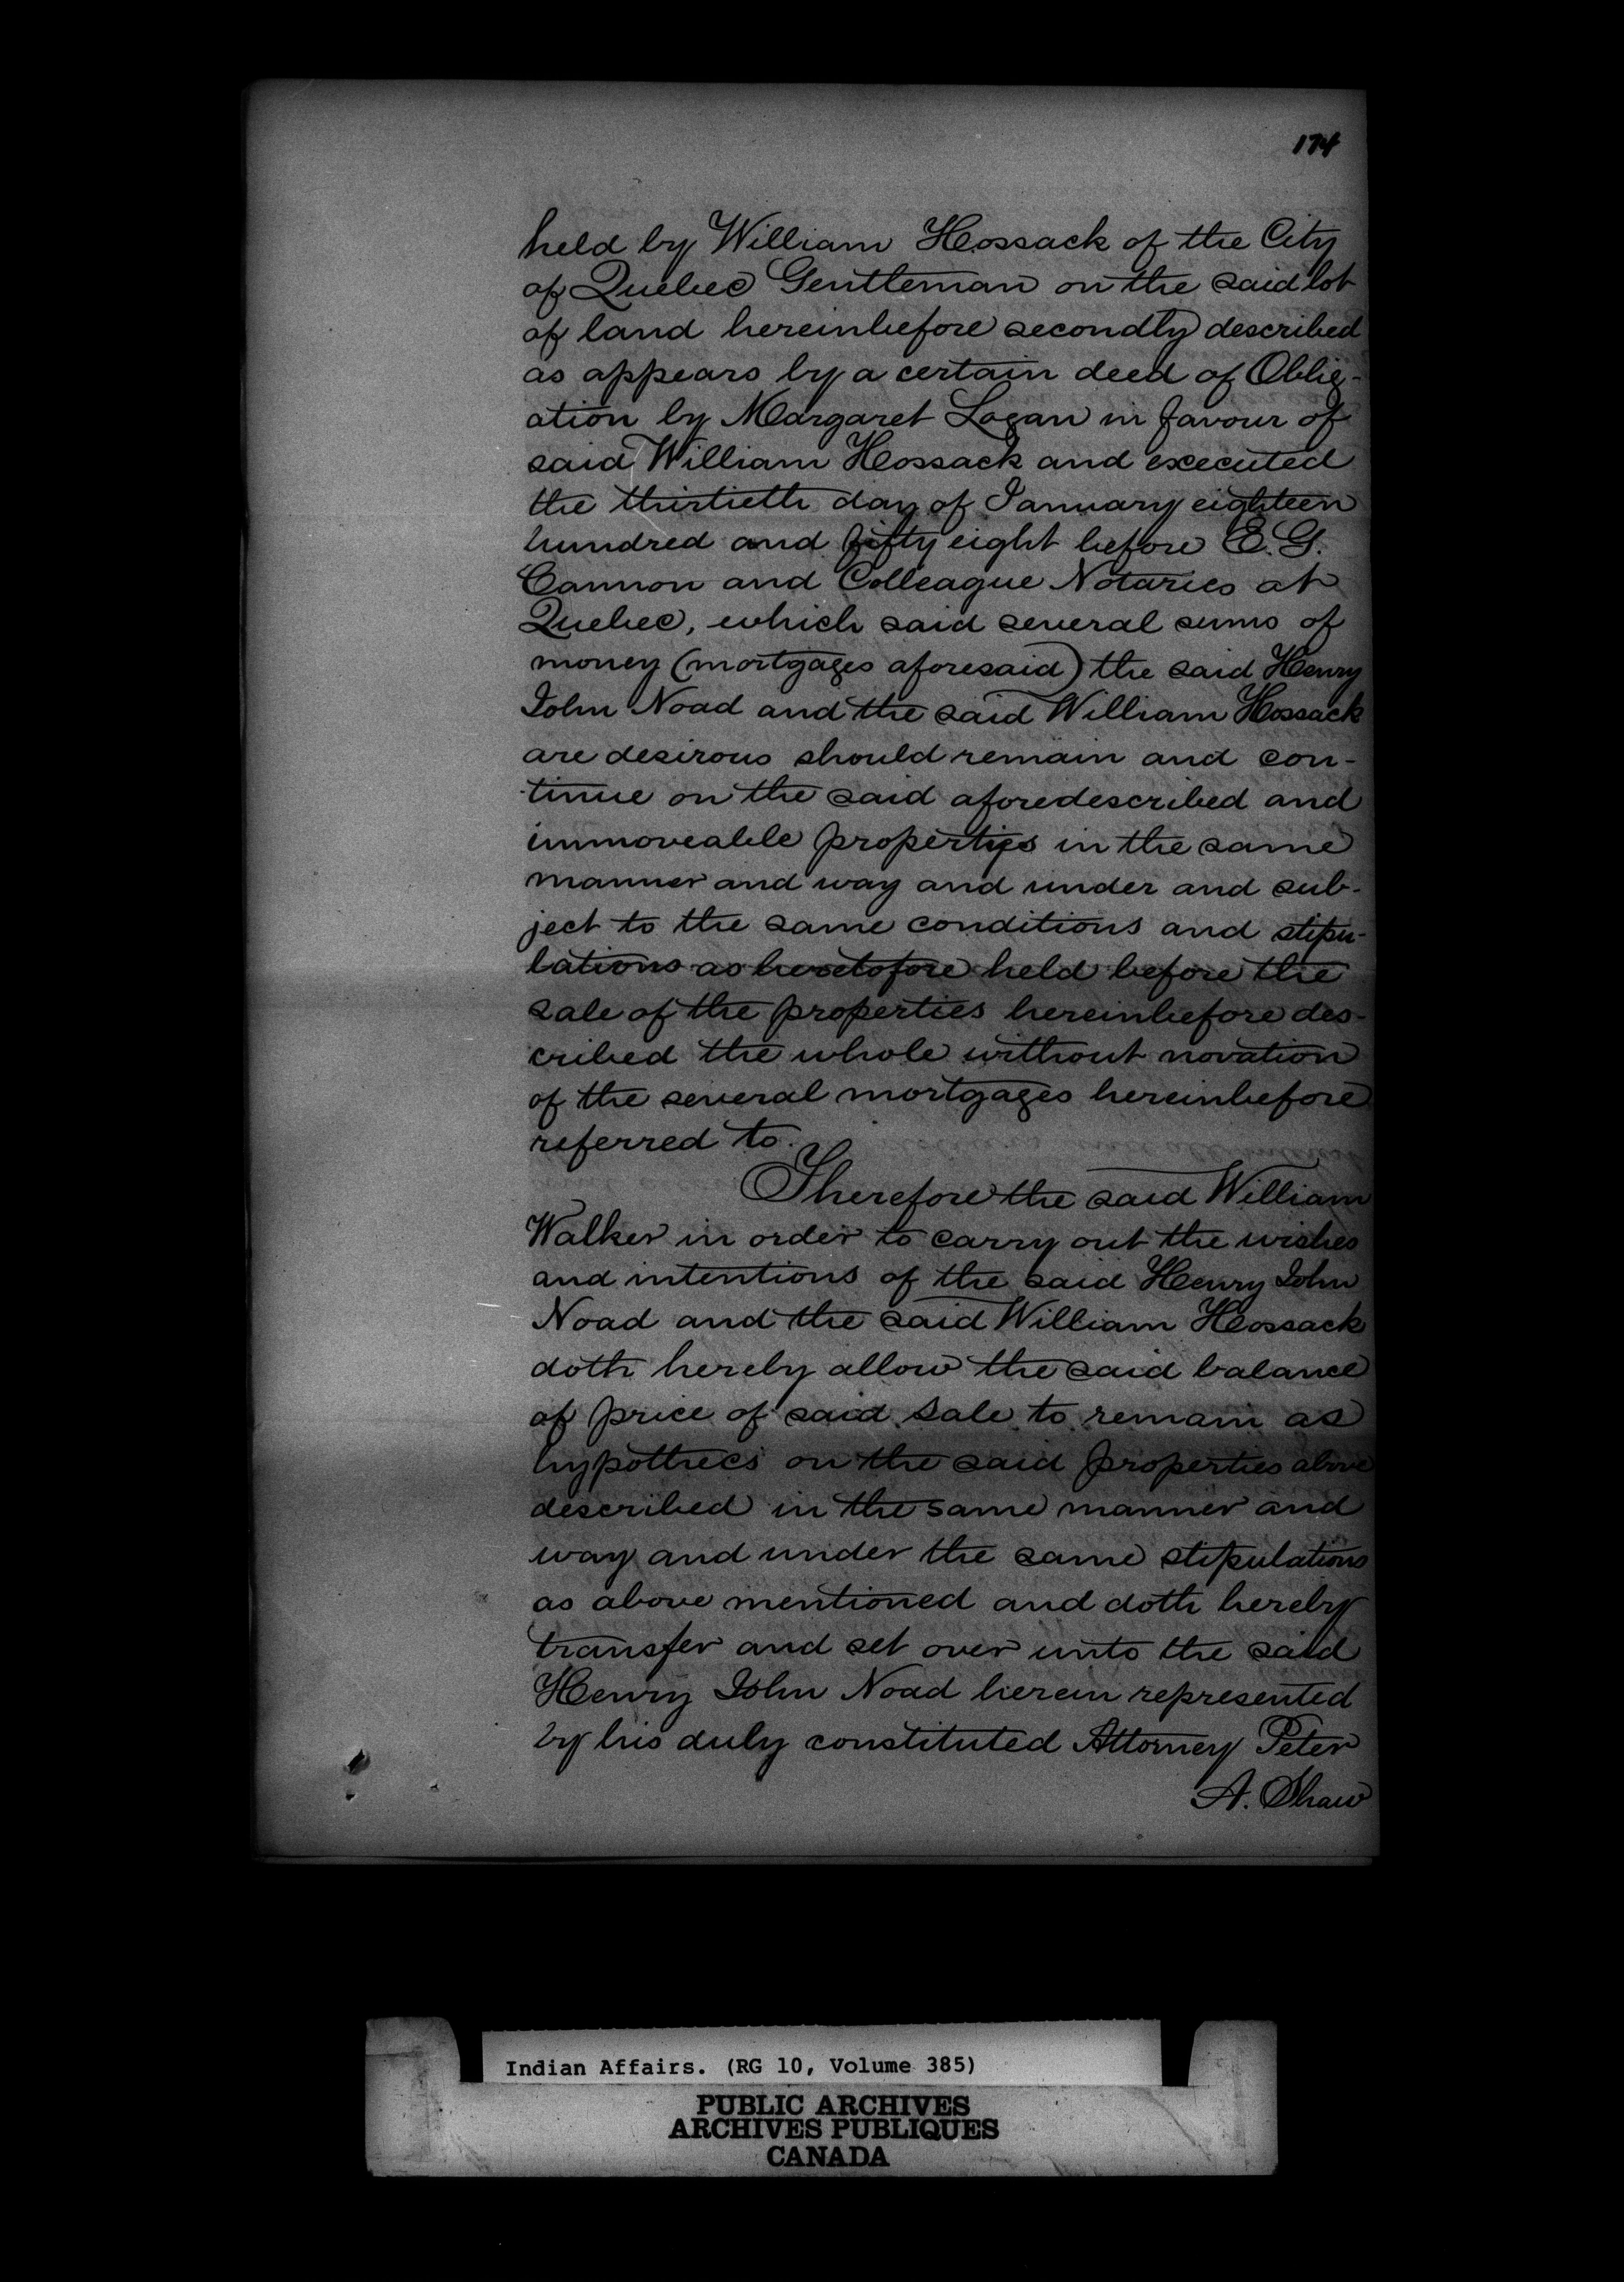 174
held by William Hossack of the City
of Quebec Gentleman on the said lot
of land hereinbefore secondly described
as appears by a certain deed of Oblig-
ation by Margaret Logan in favour of
said William Hossack and executed
the thirtieth day of January eighteen
hundred and fifty eight before E. G.
Cannon and Colleague Notaries at
Quebec, which said several sums of
money (mortgages aforesaid) the said Henry
John Noad and the said William Hossack
are desirous should remain and con-
tinue on the said aforedescribed and
immoveable properties in the same
manner and way and under and sub-
ject to the same conditions and stipu-
lations as heretofore held before the
sale of the properties hereinbefore des-
cribed the whole without novation
of the several mortgages hereinbefore
referred to.
Therefore the said William
Walker in order to carry out the wishes
and intentions of the said Henry John
Noad and the said William Hossack
doth hereby allow the said balance
of price of said sale to remain as
hypothecs on the said properties above
described in the same manner and
way and under the same stipulations
as above mentioned and doth hereby
transfer and set over unto the said
Henry John Noad herein represented
by his duly constituted Attorney Peter
A. Shaw
Indian Affairs. (RG 10, Volume 385)
PUBLIC ARCHIVES
ARCHIVES PUBLIQUES
CANADA